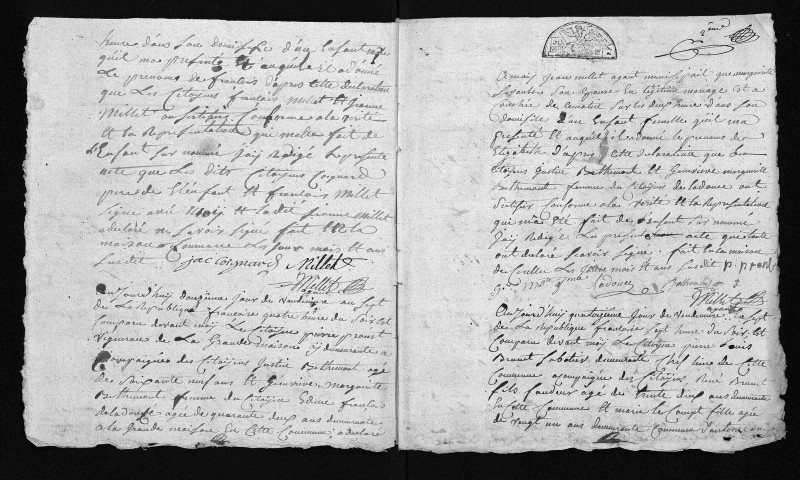 heure dans son domicile d'un Enfant mâle
qu'il m'a présenté Et auquel il a donné
Le prenoms de françois d'après Cette declaration
que Les Citoyens françois Millet Et Jeanne
Millet ont Certifiez Conforme a la verité
Et la Representation qui m'a été fait de
L'Enfant sur nommé J'ay Redigé Le presente
acte que Les dits Citoyens Coignard
pere de L'Enfant Et françois Millet
Signé avec Moy Et ladite femme Millet
a declaré ne savoir Signé fait En la
maison Commune Les Jour mois Et ans
Susdit jac Coignard Millet
Millet
agent
Aujourd'huy Jour de Vendemiere au Sept
de La Republique françoise quatre heure du Soir Est
Comparu devant moy Le Citoyen pierre proust
vigneron de La Grande maison y demeurante a
Compagniez des Citoyens Justin Bethemont agé
de Soixante neuf ans Et Genevieve Marguerite
Bethemont femme du Citoyen françois
de Ladouce agee de quarante deux ans demeurante
a La Grande maison En Cette Commune, a declaré
2ème
A moy Jean millet agent municipal que marguerite
Son Epouse En Legitime mariage Est a
Couchée de Ce matin Sur les deux heure dans son
domicile d'un Enfant femelle qu'il m'a
presenté Et auquel il a donné le prenoms de
Elizabeth D'après Cette declaration que Les
Citoyens Justin Bethemont Et Genevieve marguerite
Bethemont femme du Citoyen de Ladouce ont
Certifiez Conforme a la verité Et la Representation
qui m'a Eté fait de L'enfant Sur nommé
J'ay Redigé La presente acte que
ont declaré Scavoir Signé. fait En la maison
Les Jour mois Et ans Susdit p. proust
Ladouce Bethemont
Millet
agent
Aujourd'huy quatorzieme Jour de Vendemiere au Sept
de La Republique françoise Sept heure du Soir Est
Comparu devant moy Le Citoyen pierre Louis
Brunet Sabotier demeurante Chef lieu de Cette
Commune accompagnée des Citoyens René Brunet
fils agé de trente deux ans demeurante
En Cette Commune Et marie Le Coupt fille agée
de vingt un ans demeurante Commune